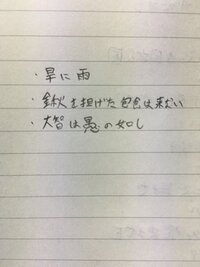 ・旱に雨
・鍬を担げた乞食は来ない
・大智は愚の如し